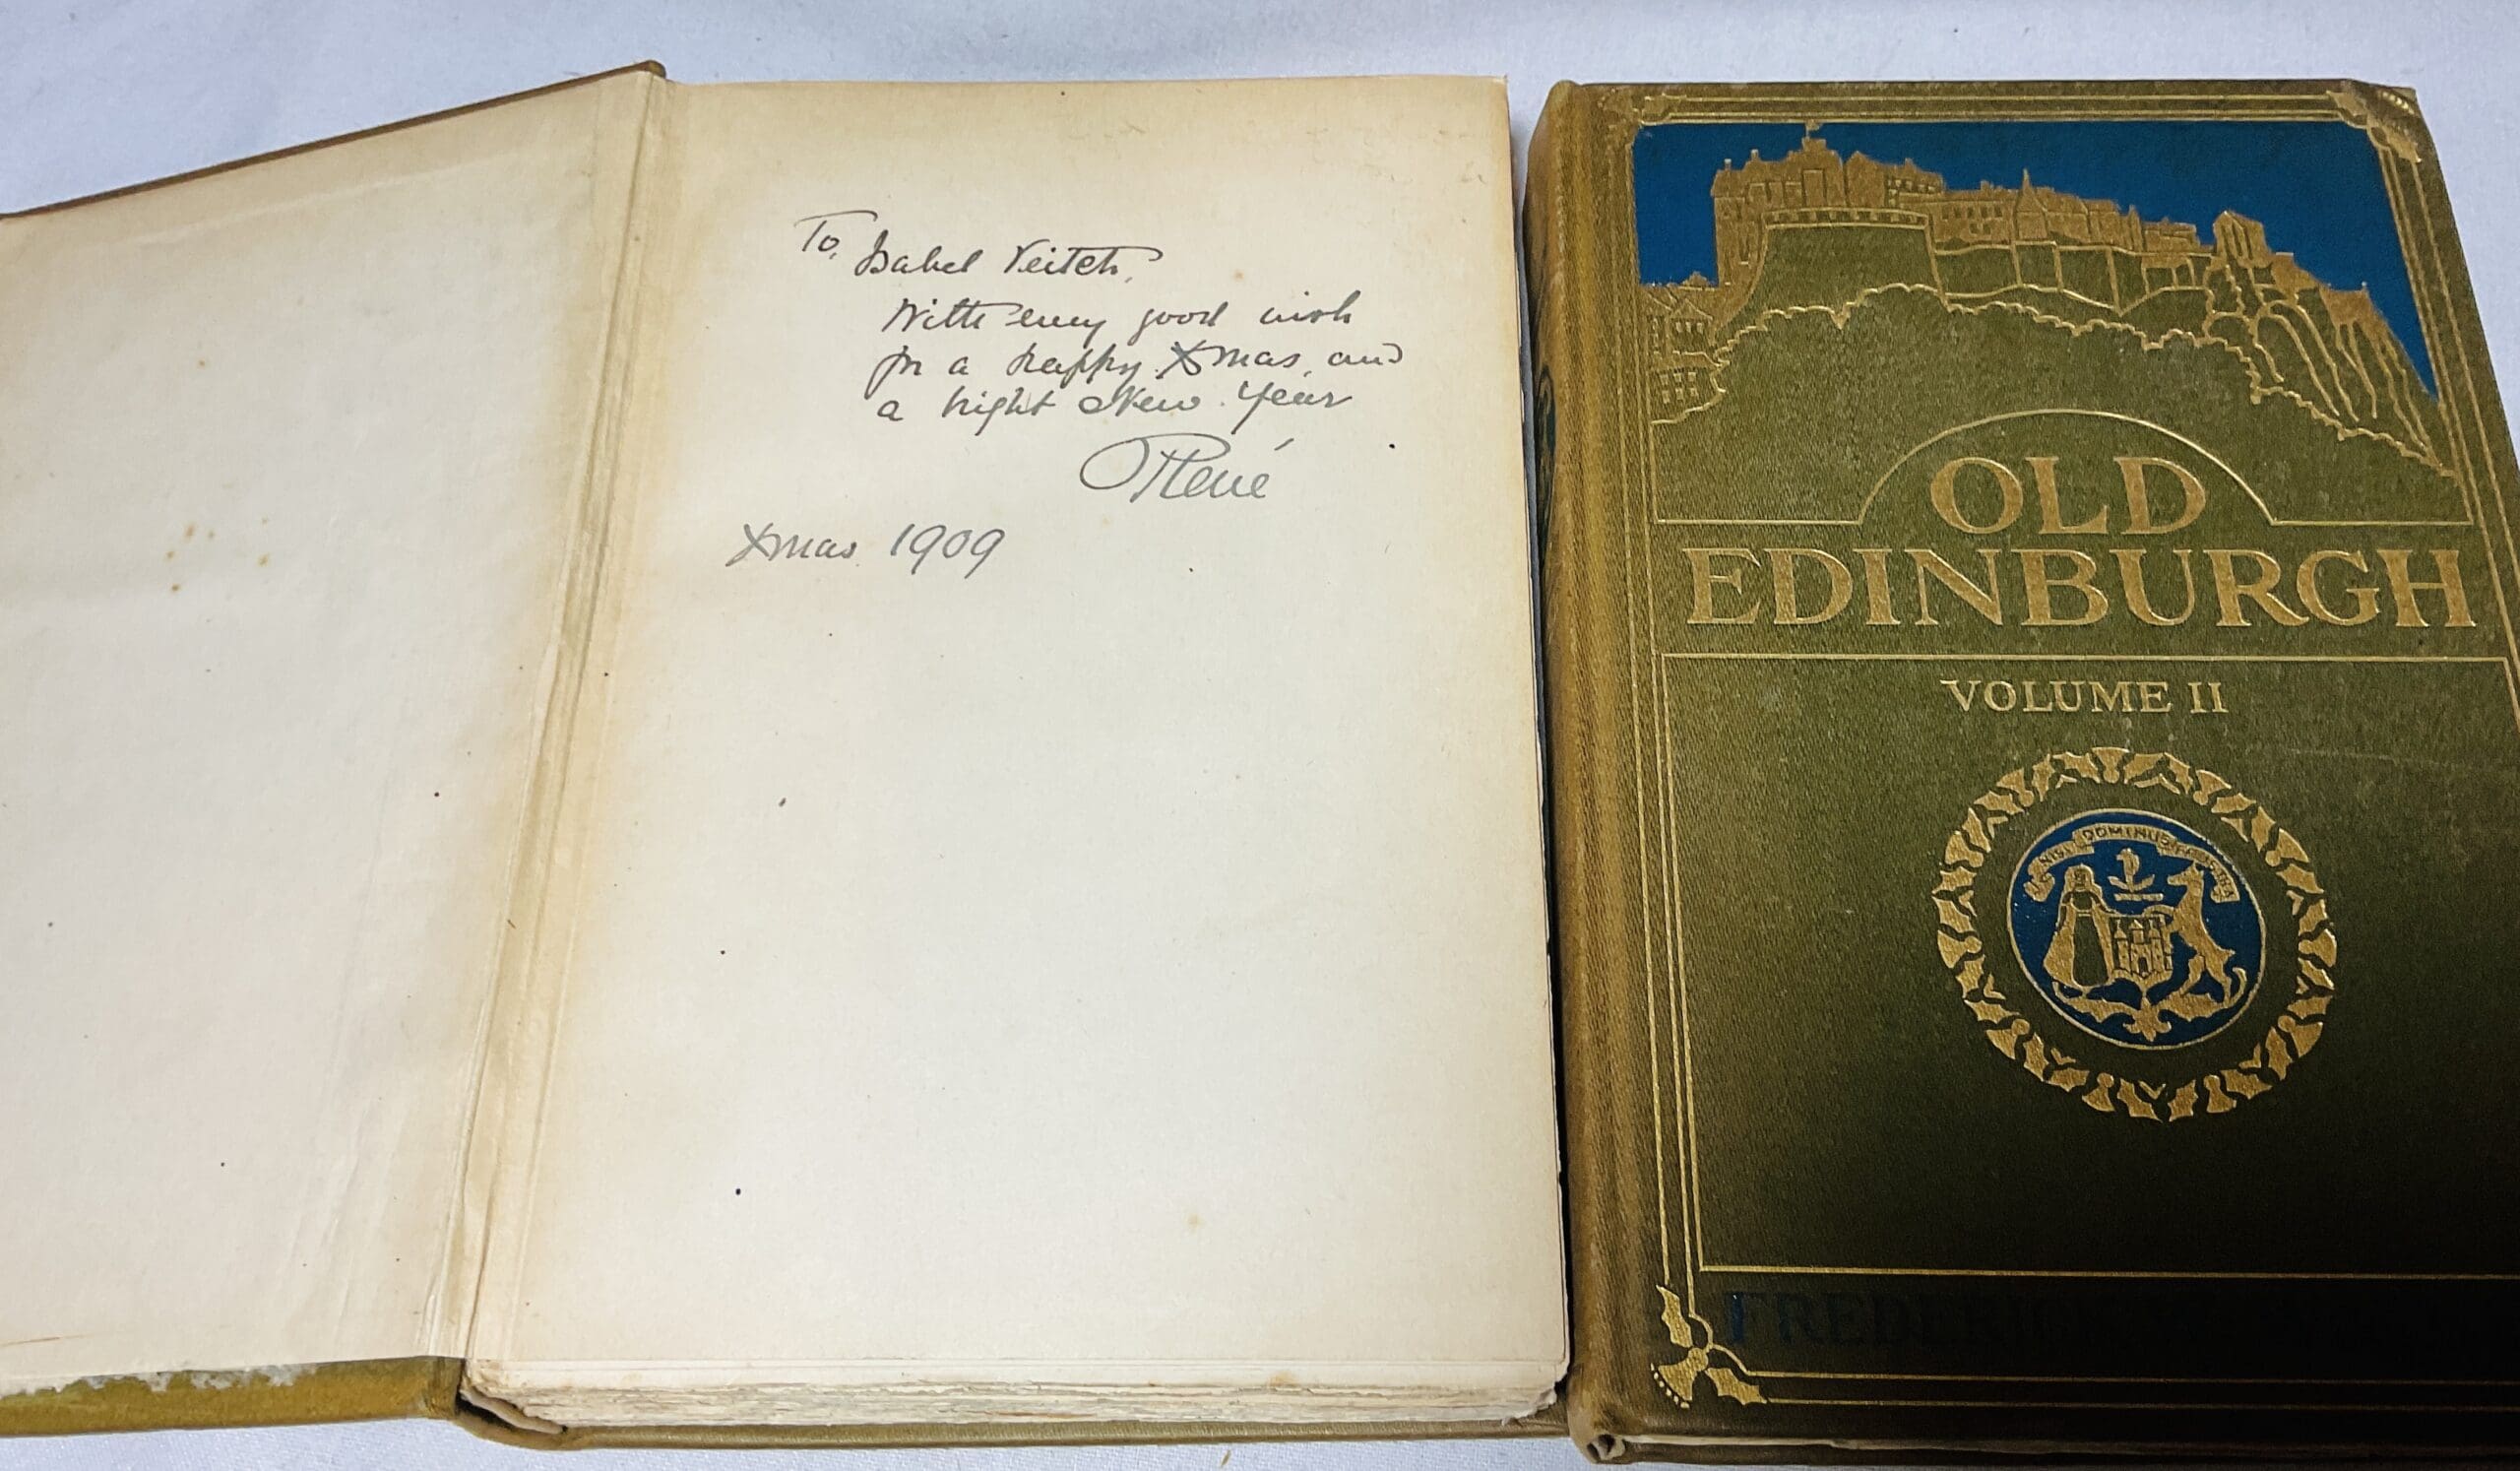 To, Isabel Veitch,
With every good wish
for a happy Xmas, and
a bright New Year
René
Xmas 1909
OLD
EDINBURGH
VOLUME II
NISI DOMINUS FRUSTRA
FREDERICK